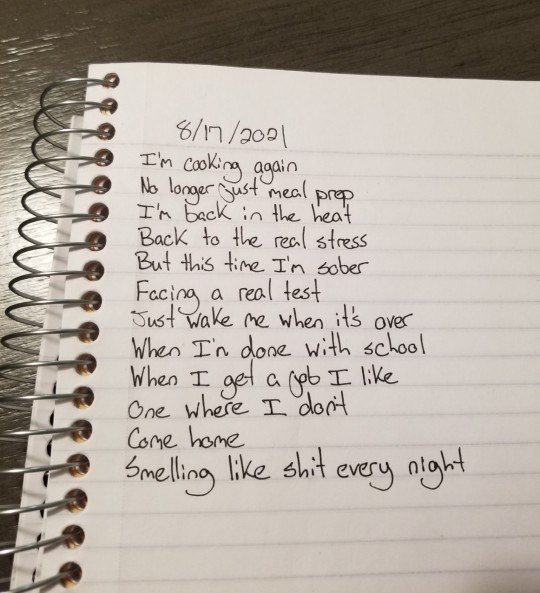 8/17/2021
I'm cooking again
No longer just meal prep
I'm back in the heat
Back to the real stress
But this time I'm sober
Facing a real test
Just wake me when it's over
When I'm done with school
When I get a job I like
One where I don't
Come home
Smelling like shit every night